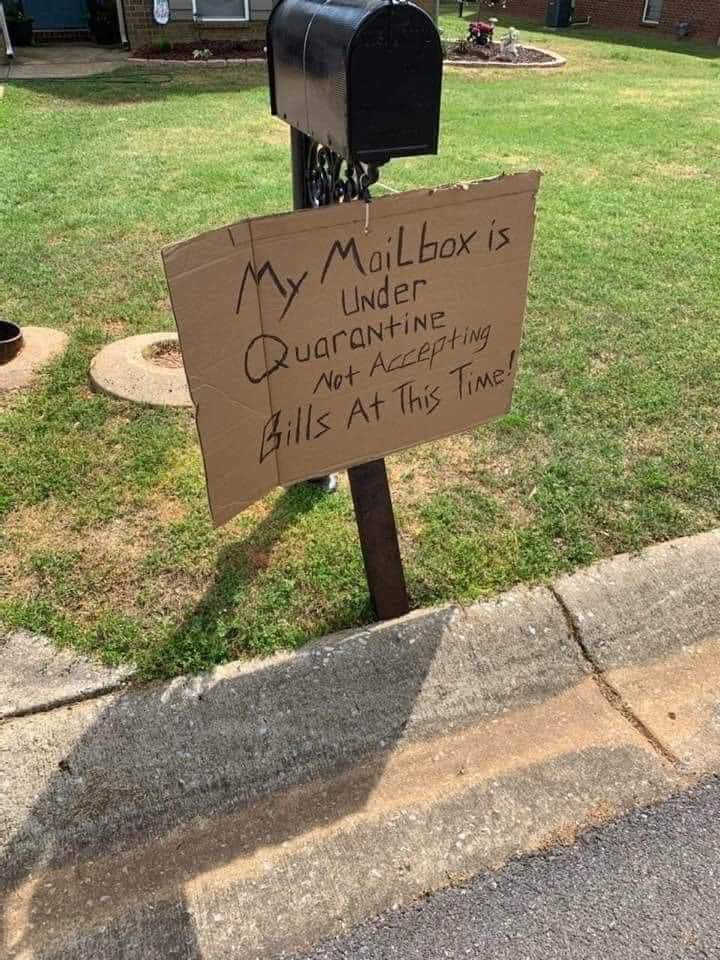 My MaiLbox is
UNder
QuarantiNE
Not Accepting
Bills At This Time!